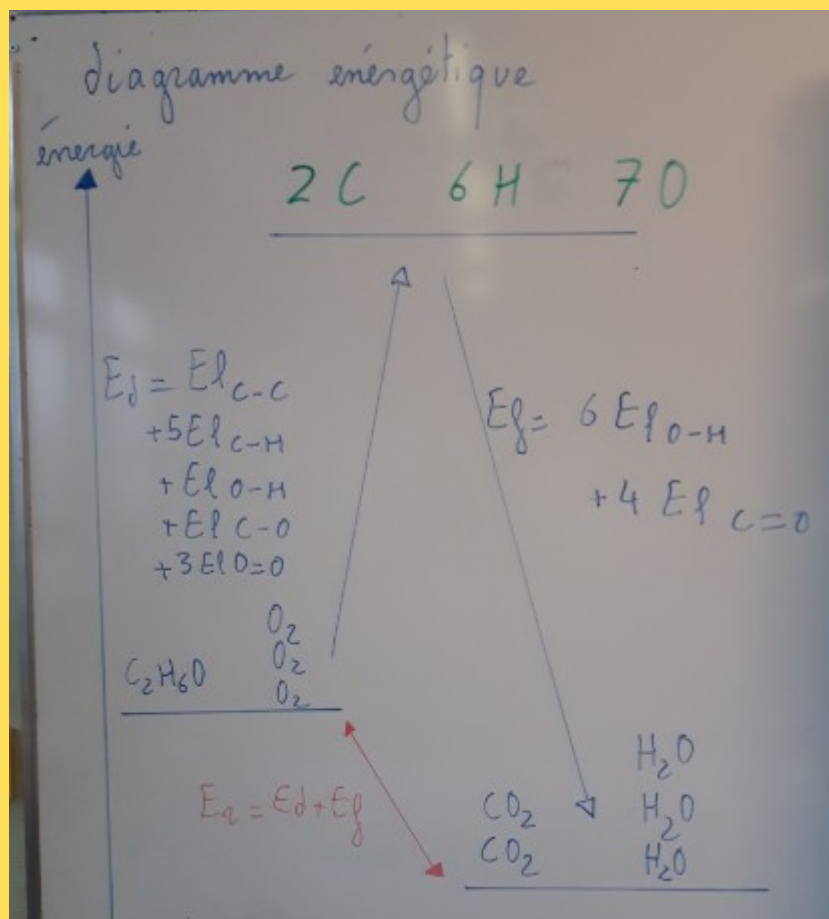 diagramme énérgétique
énergie
2C 6H 7O
Ed = El C-C
+5El C-H
+El O-H
+El C-O
+3El O=O
Ef = 6 El O-H
+4 El C=O
O₂
O₂
C₂H₆O O₂
Er = Ed+Ef
H₂O
CO₂ H₂O
CO₂ H₂O